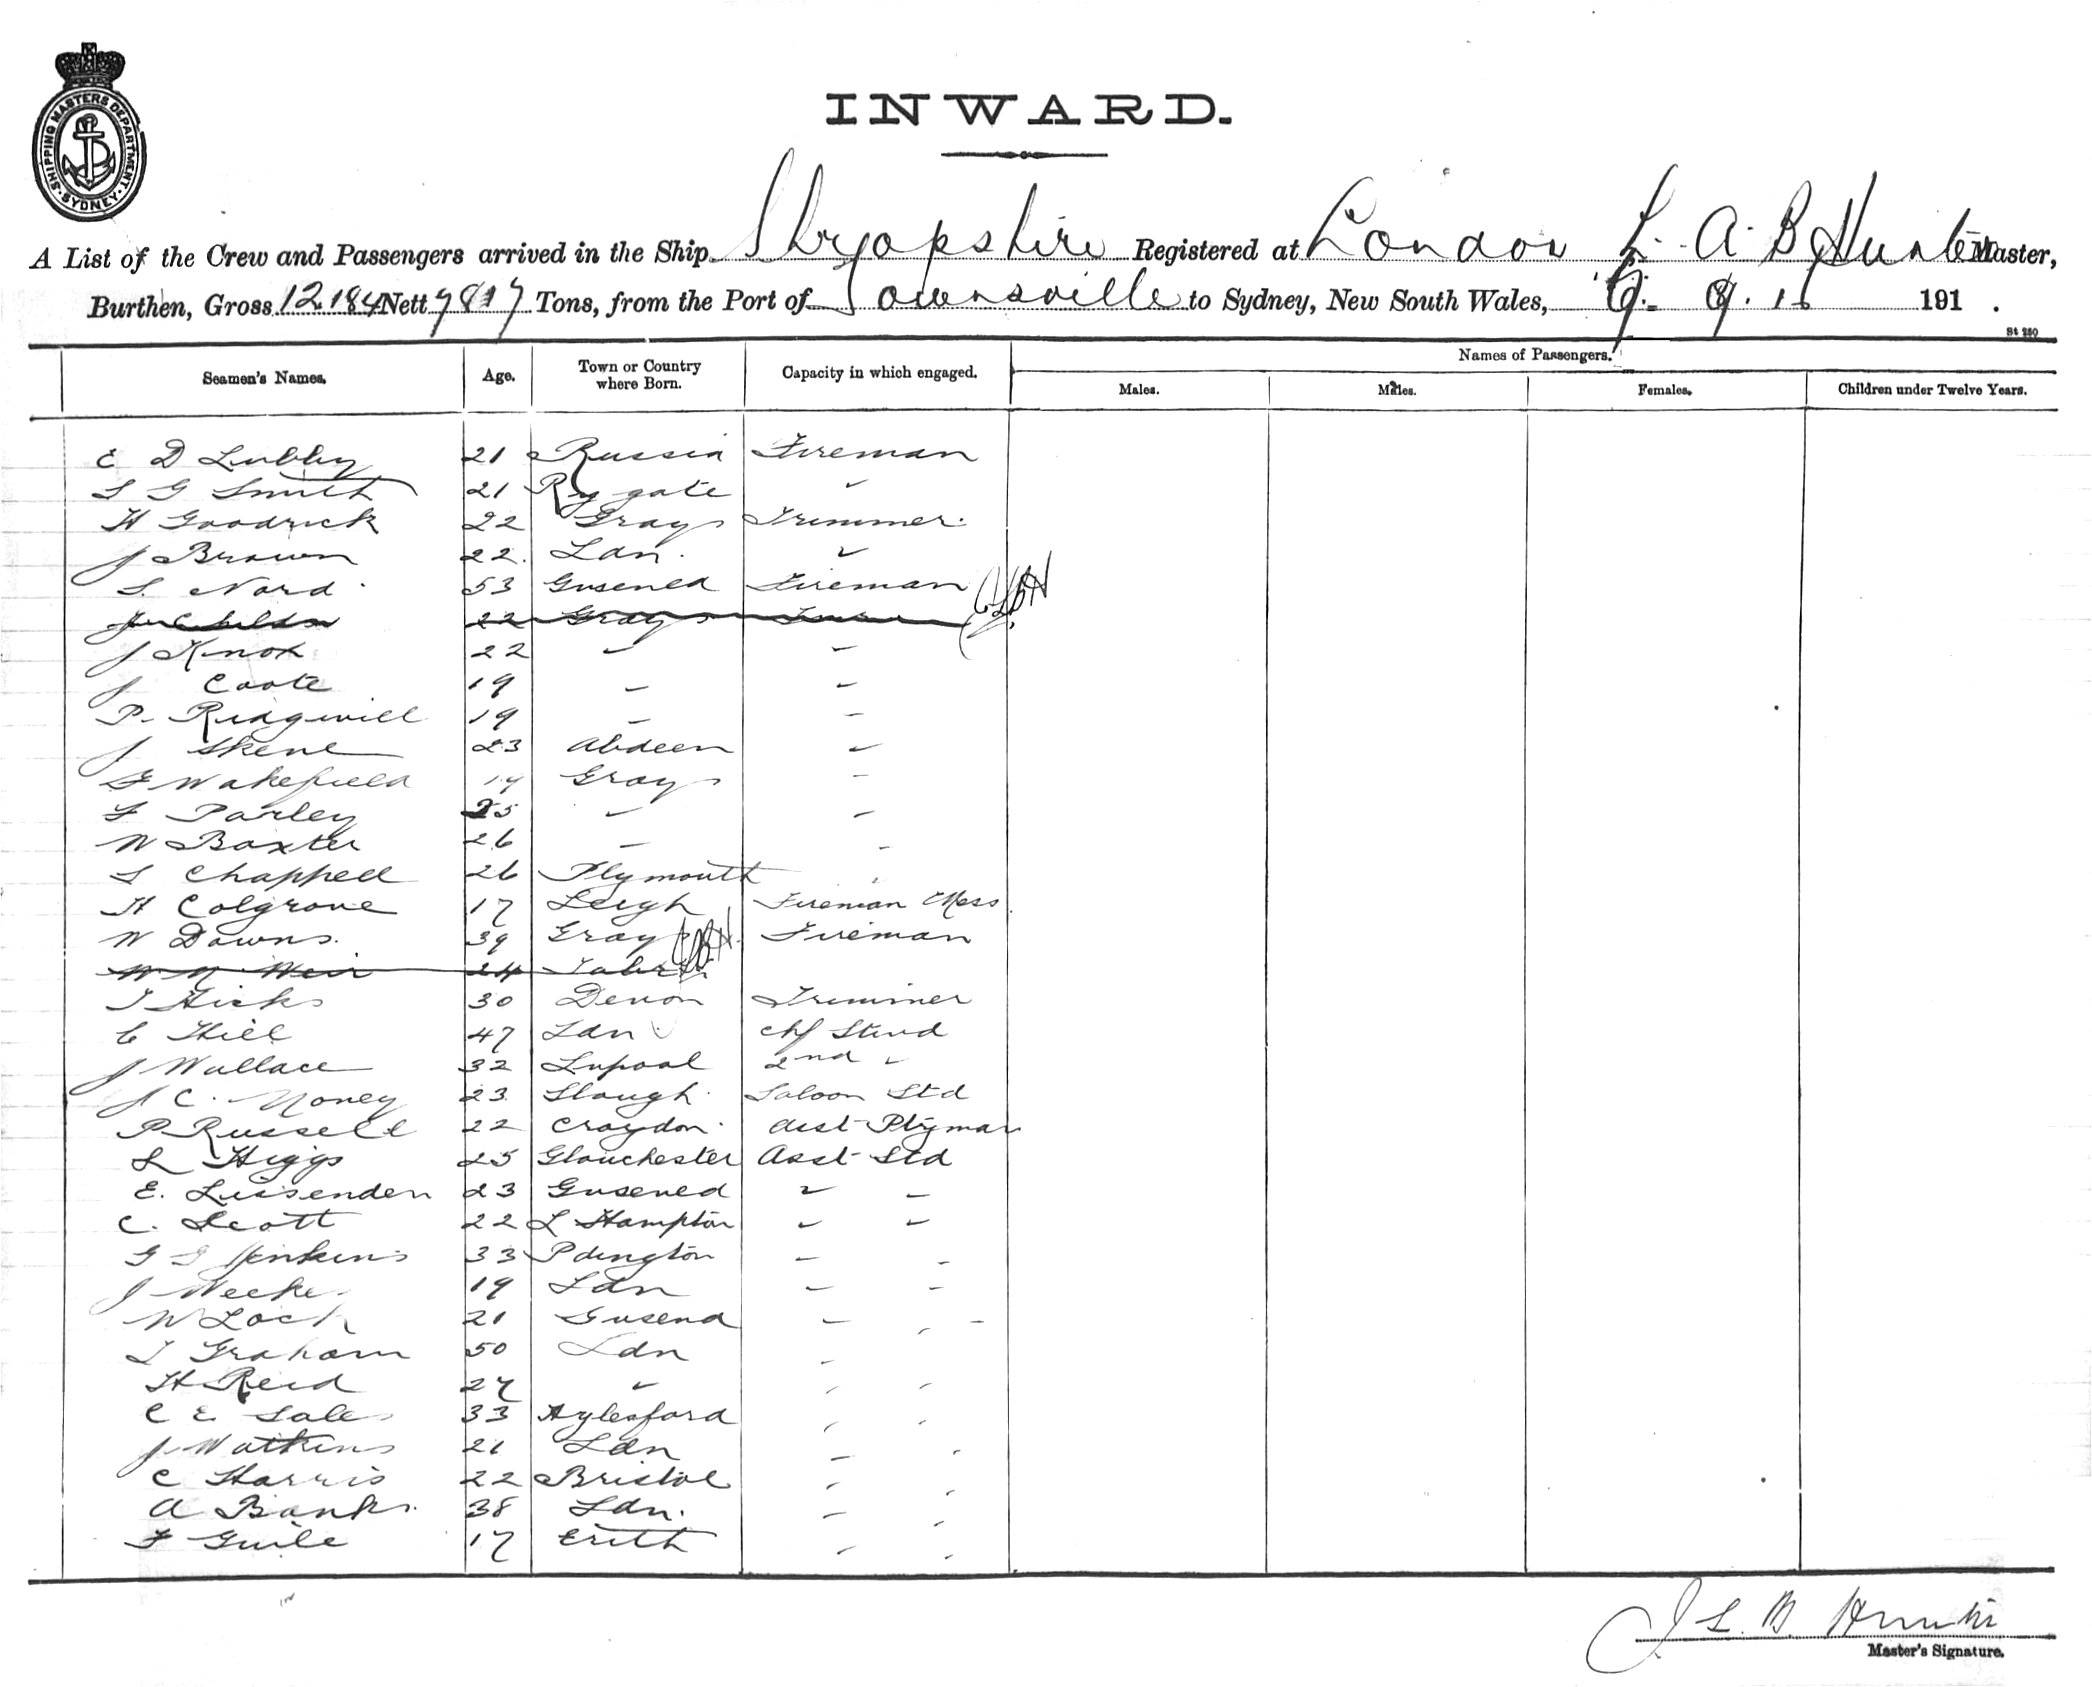 SHIPPING MASTERS DEPARTMENT · SYDNEY ·
INWARD.
A List of the Crew and Passengers arrived in the Ship Shropshire Registered at London A. B Hunter Master,
Burthen, Gross 12184 Nett 7817 Tons, from the Port of Townsville to Sydney, New South Wales, 191 .
St 250
Names of Passengers.
Seamen's Names. Age. Town or Country where Born. Capacity in which engaged. Males. Males. Females. Children under Twelve Years.
E D Lubby 21 Russia Fireman
S G Smith 21 Rygate "
H Goodrick 22 Grays Trimmer.
J Brown 22. Ldn. "
S. Nord 53 Gvsened Fireman
J Childs 22 Grays
J Knox 22 " "
J Coote 19 " "
P. Ridgwell 19 " "
J Skene 23 Abdeen "
F Wakefield 19 Grays "
F Parley 25 " "
W Baxter 26 " "
S Chappell 26 Plymouth "
H Colgrove 17 Leigh Fireman Mess
W Downs. 39 Grays Fireman
W Weir 24
T Hicks 30 Devon Trimmer
C Hill 47 Ldn Chf Stwd
J Wallace 32 Lvpool 2nd "
J C. Noney 23 Slough. Saloon Std
P Russell 22 Croydon. Asst Ptryman
L Higgs 25 Glouchester Asst Std
E. Lissenden 23 Gvsened " "
C. Scott 22 L Hampton " "
G S Jenkins 33 Pdington " "
J Neeke 19 Ldn " "
W Lock 21 Gvsend " "
T Graham 50 Ldn "
H Reid 27 " " "
C E Sales 33 Aylesford " "
J Watkins 21 Ldn " "
C Harris 22 Bristol " "
A Banks. 38 Ldn. " "
F Guile 17 Erith " "
J L B Hunter
Master's Signature.